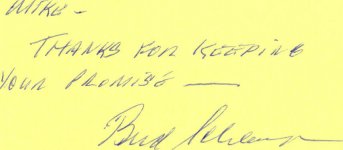 MIKE —
THANKS FOR KEEPING
YOUR PROMISE —
Bud